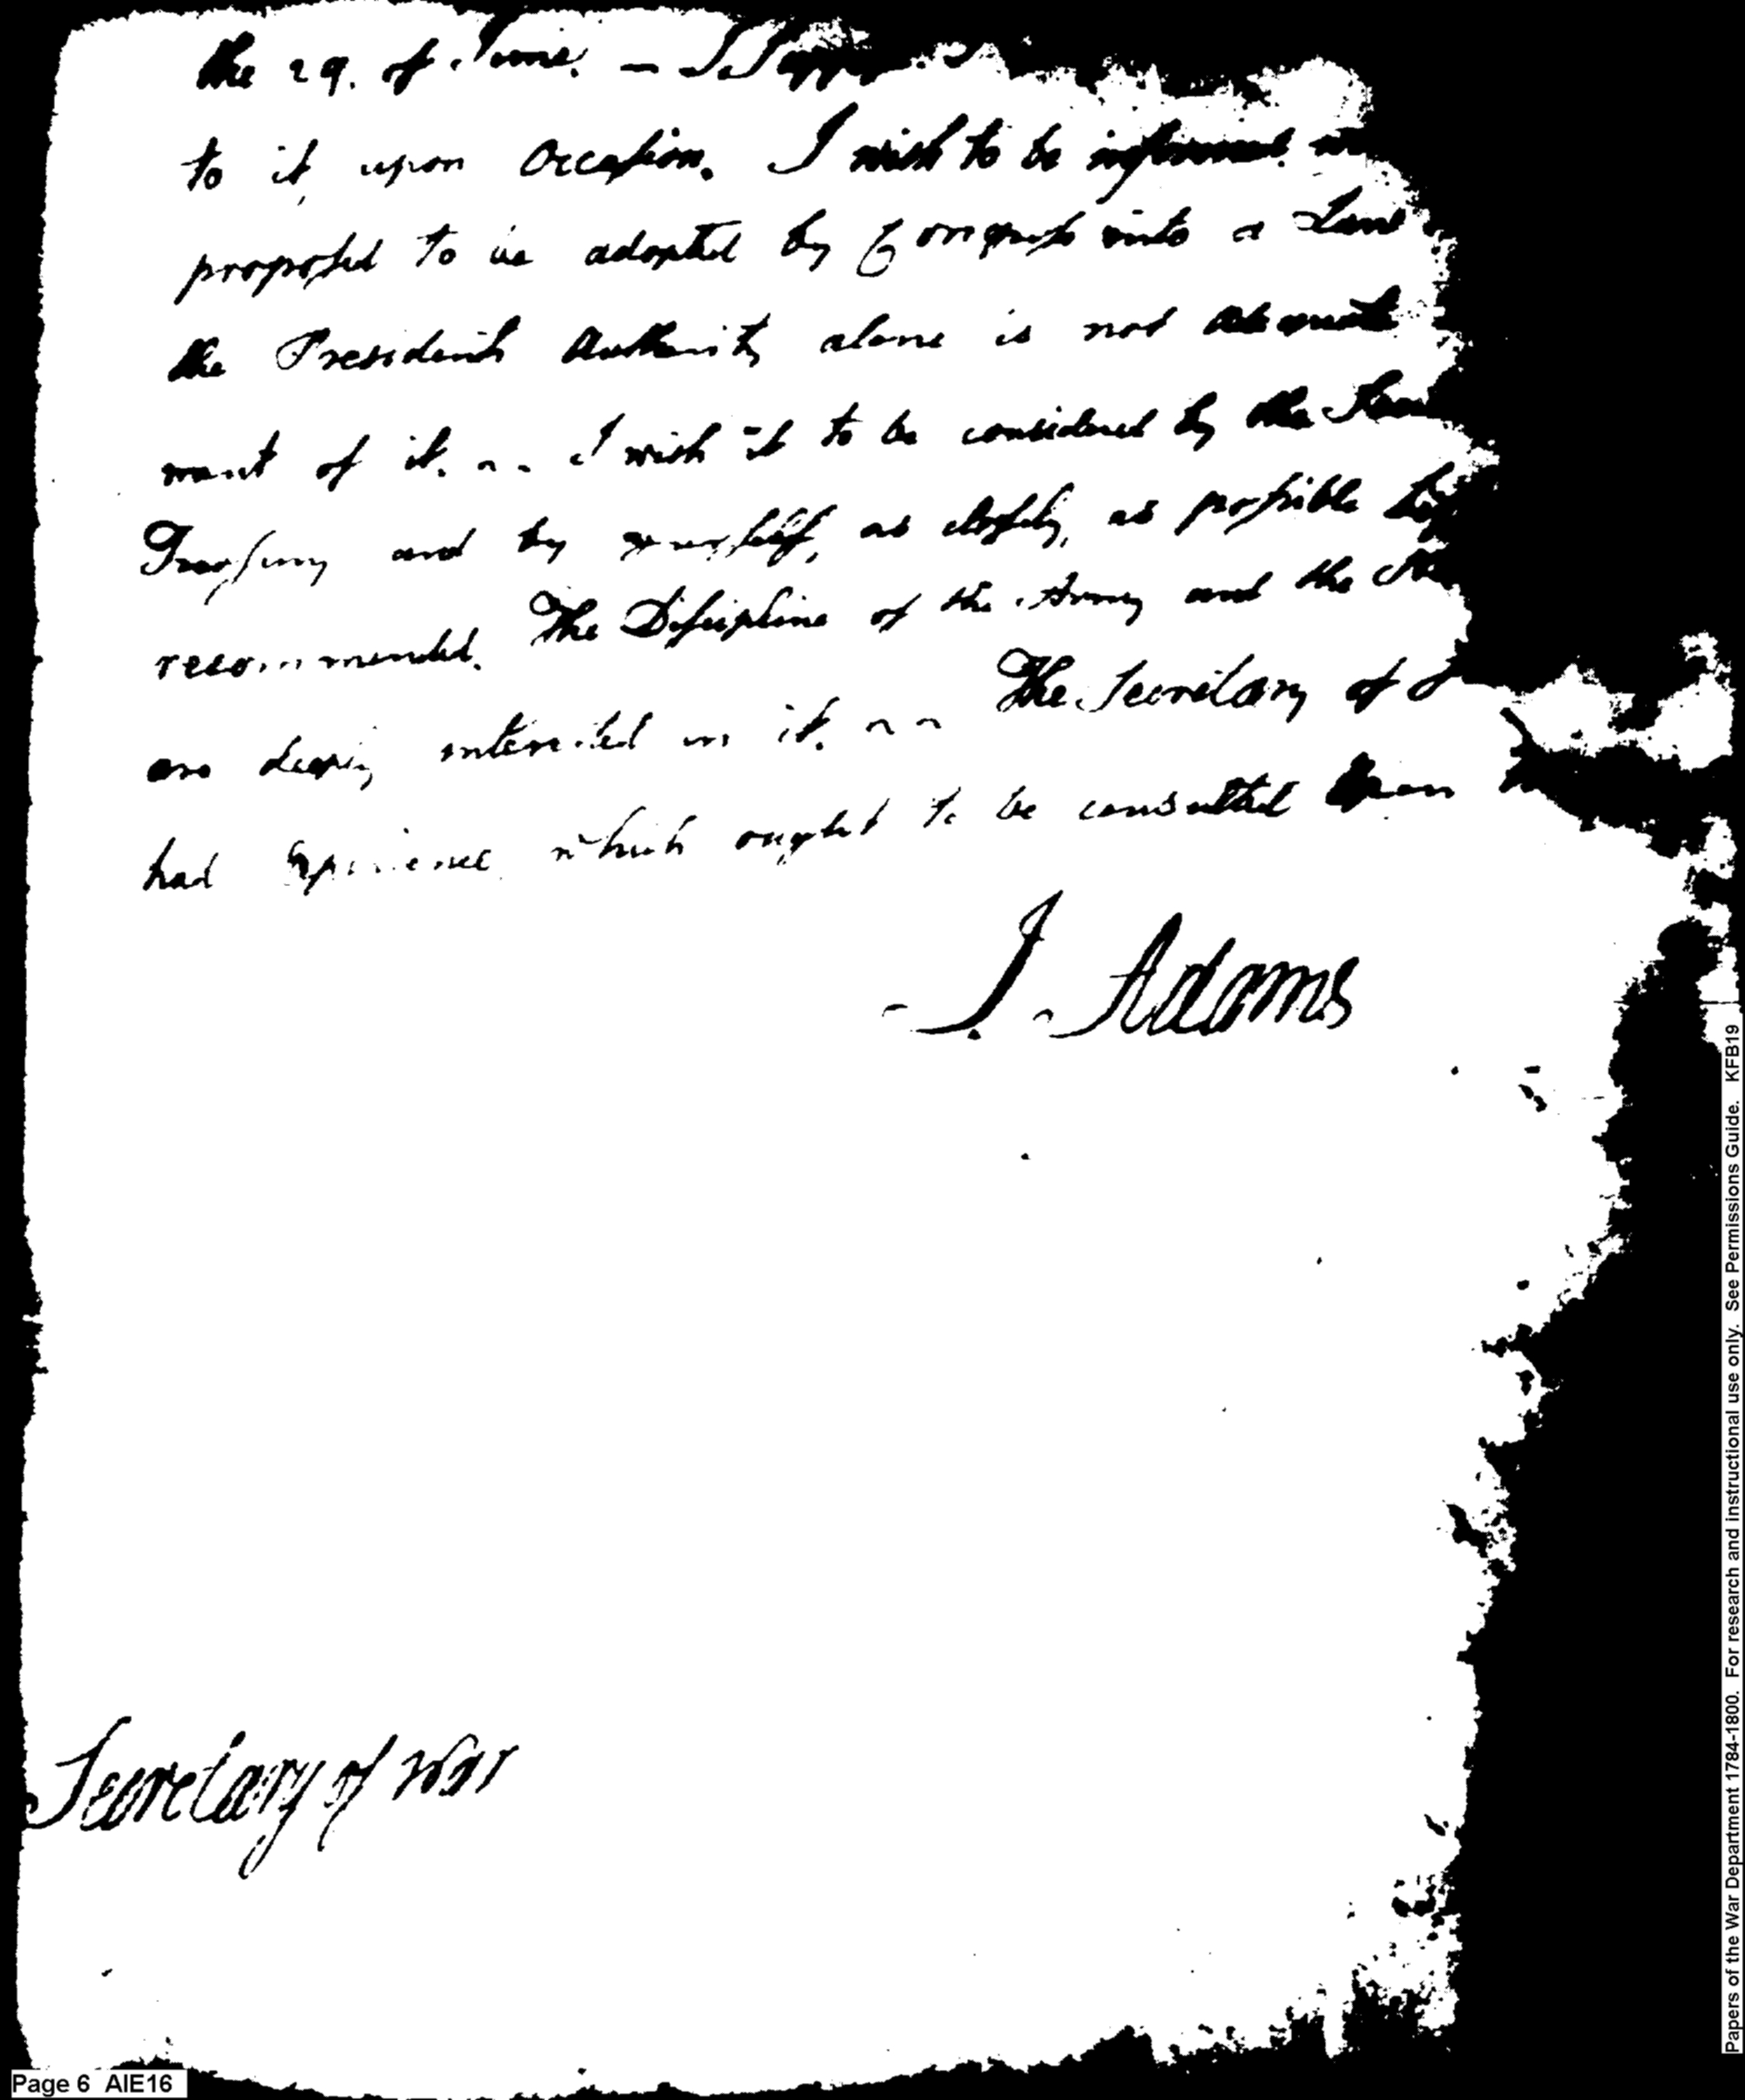 the 29. of June. –
to it, upon Occasion. I wish to be informed
proposed to be adopted by Congress into a Law
the President's Authority alone is not adequate
ment of it. I wish it to be considered by the
Treasury and by yourself, as closely, as possible
recommended. The Discipline of the Army and the
are deeply interested in it. The Secretary of
had Experience which ought to be consulted
J. Adams
Secretary of War
Page 6 AIE16
Papers of the War Department 1784-1800. For research and instructional use only. See Permissions Guide. KFB19